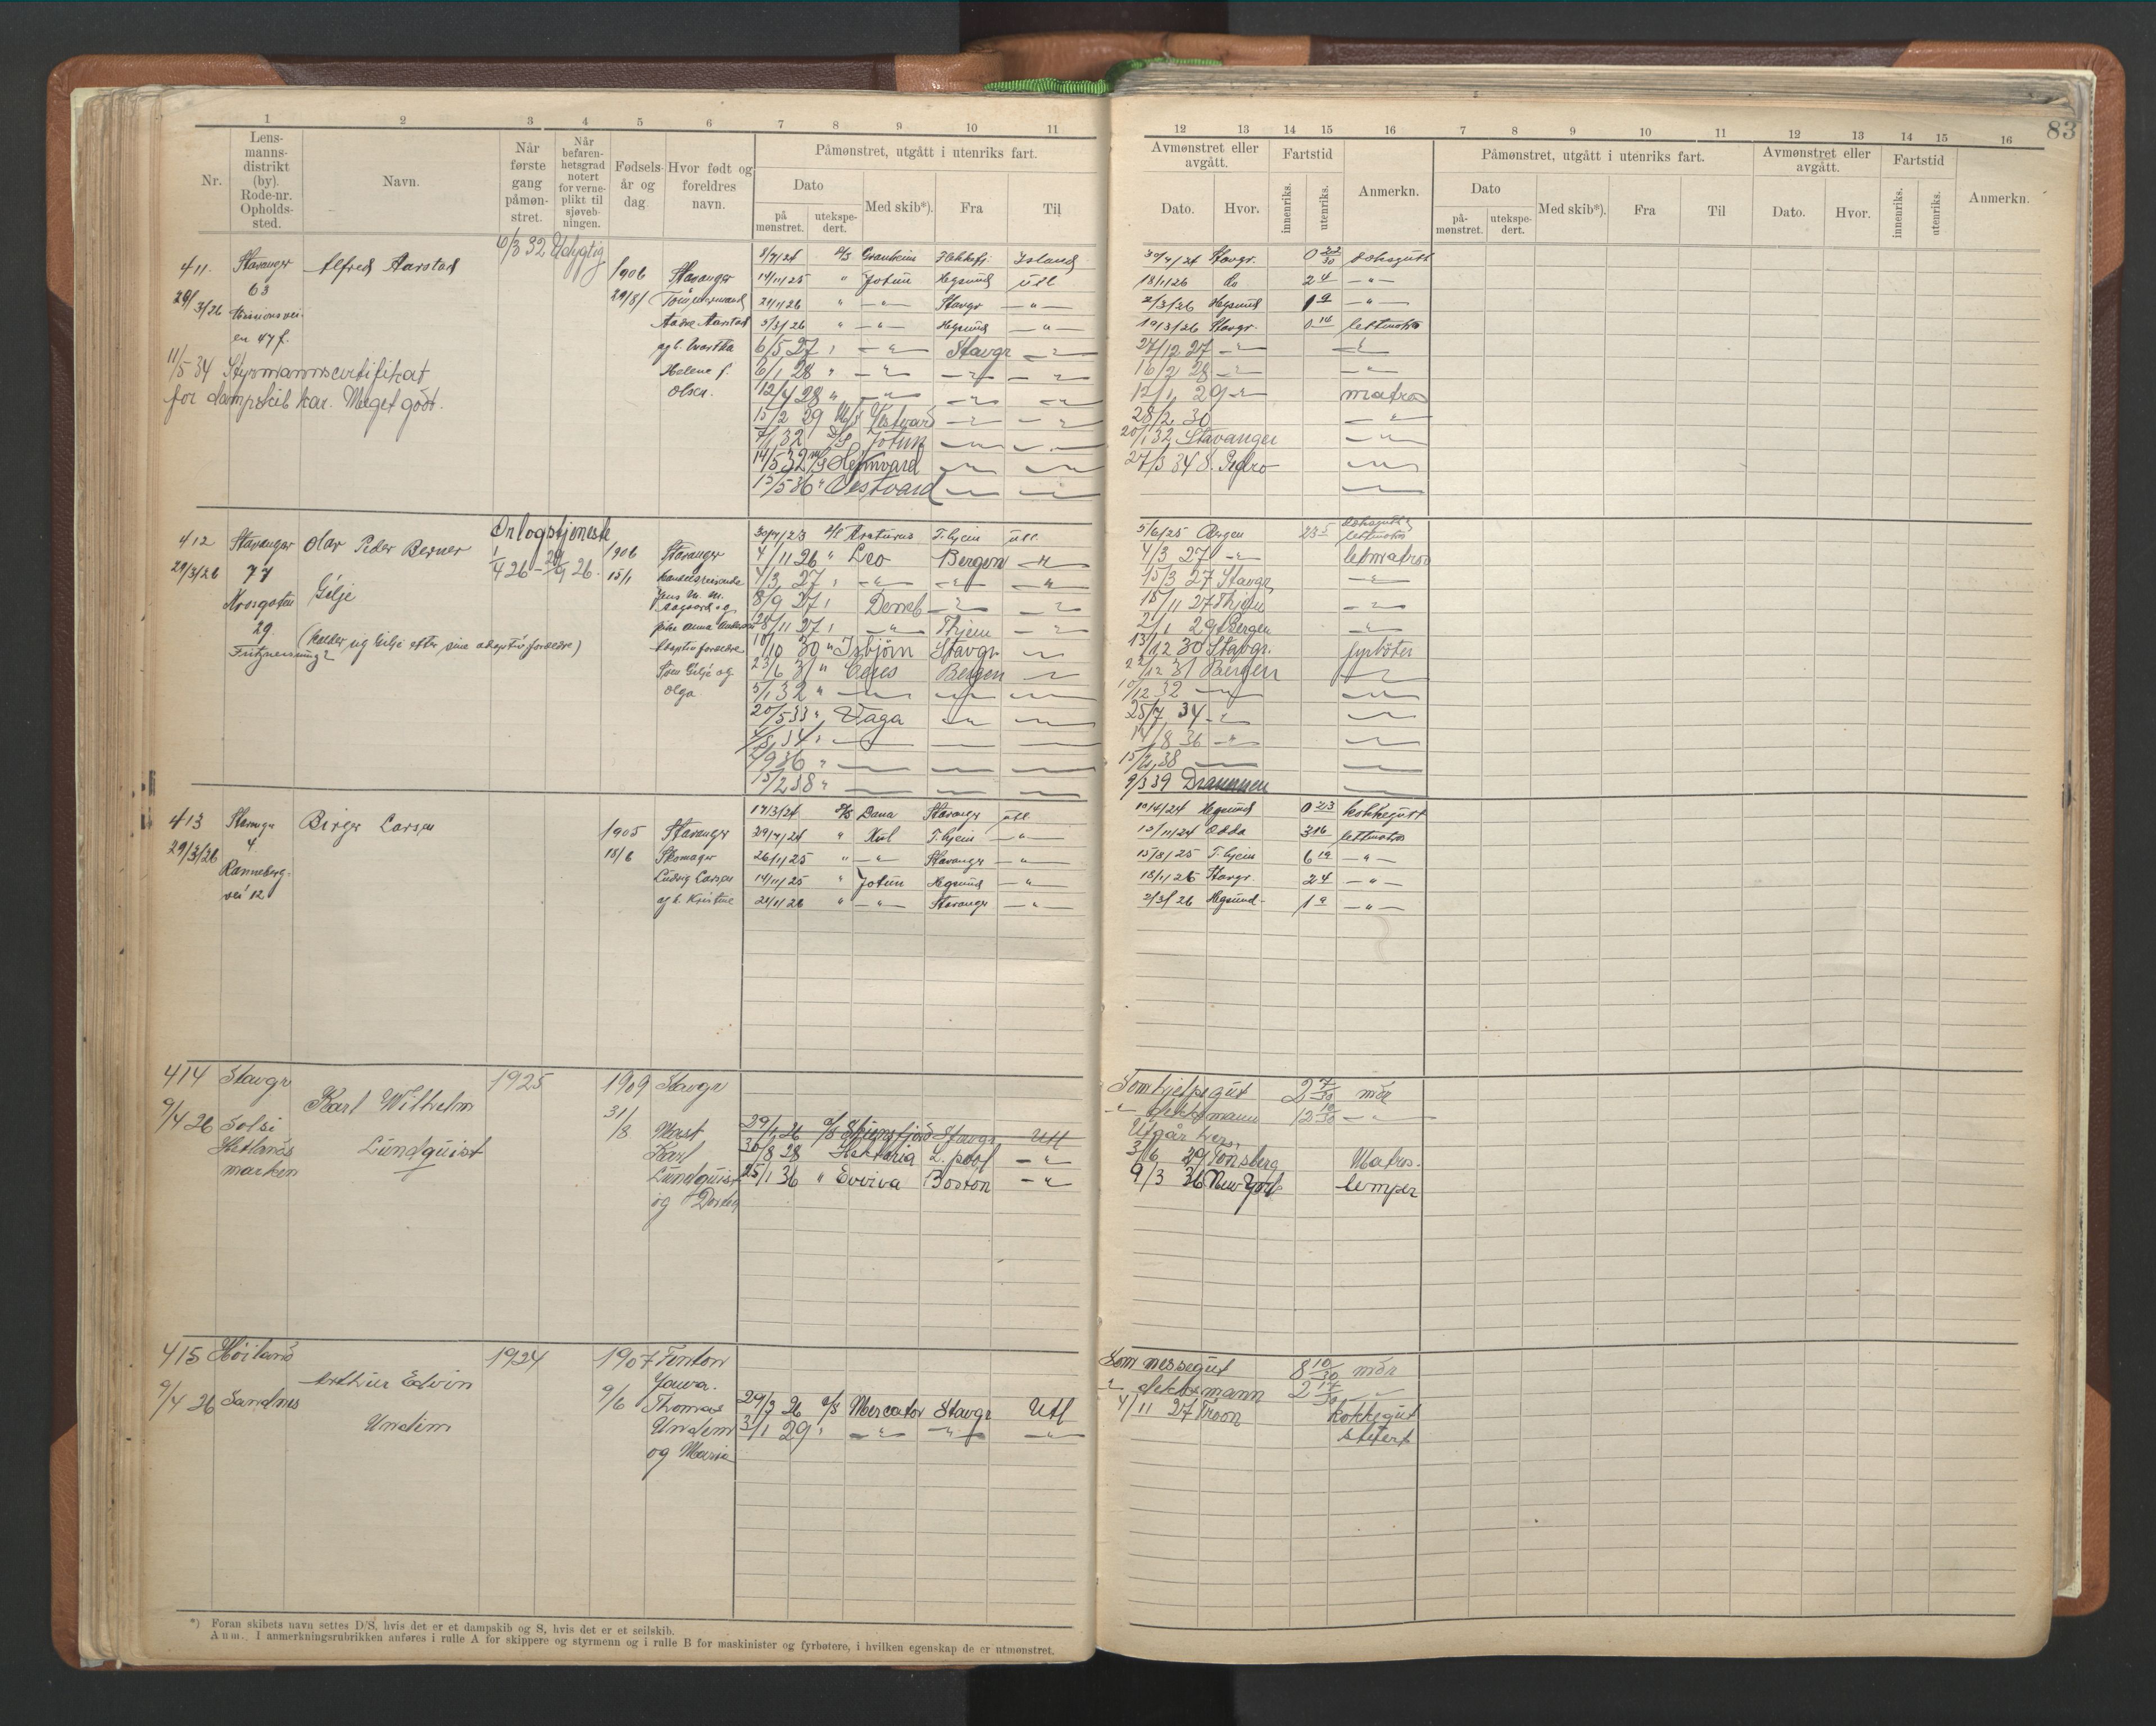 83
1 2 3 4 5 6 7 8 9 10 11
12 13 14 15 16 7 8 9 10 11 12 13 14 15 16
Nr.
Lens-
manns-
distrikt
(by).
Rode-nr.
Opholds-
sted.
Navn.
Når
første
gang
påmøn-
stret.
Når
befaren-
hetsgrad
notert
for verne-
plikt til
sjøveb-
ningen.
Fødsels-
år og
dag.
Hvor født og
foreldres
navn.
Påmønstret, utgått i utenriks fart.
Dato
på
mønstret.
utekspe-
dert.
Med skib*).
Fra
Til
Avmønstret eller
avgått.
Dato.
Hvor.
Fartstid
innenriks.
utenriks.
Anmerkn.
Påmønstret, utgått i utenriks fart.
Dato
på-
mønstret.
utekspe-
dert.
Med skib*).
Fra
Til
Avmønstret eller
avgått.
Dato.
Hvor.
Fartstid
innenriks.
utenriks.
Anmerkn.
411. Stavanger Alfred Aarstad 6/3 32 Udygtig 1906 Stavanger
63
29/3/26
en 47 f.
29/8
Helene f.
Olsen.
11/5 34 Styrmannscertifikat
for dampskib kar. Meget godt.
8/7/24 D/S Island 30/9/24 Stavgr. 0 22/30 dæksgutt
14/11/25 " Jotun Hgsund Utl 18/1/26 do 2 4 - " -
21/1/26 " - " - Stavgr - " - 2/3/26 Hgsund 1 9 - " -
5/3/26 " - " - Hgsund - " - 19/3/26 Stavgr. 0 14 lettmatros
6/5 27 " - " - Stavgr - " - 27/12 27 - " - - " -
6/1 28 " - " - - " - - " - 16/2 28 - " - - " -
12/4 28 " - " - - " - - " - 12/1 29 - " - matros
15/2 29 M/S Vestvard - " - - " - 28/2 30 - " -
7/1 32 D/S Jotun - " - - " - 20/1 32 Stavanger - " -
14/5 32 M/S Heimvard - " - - " - 27/3 34 S. Pedro - " -
15/5 36 " Vestvard - " - - " - - " -
412 Stavanger Olav Peder Berner Orlogstjeneste 1906 Stavanger
29/3/26 77 Gilje 15/1
Krosgaten
29
(kalder sig Gilje efter sine adoptivforældre)
Adoptivforældre
Gilje og
Olga
30/7/23 D/S Arcturus T.hjem utl. 5/6/25 Bergen 23 5 dæksgutt
lettmatros
4/11 26 " Leo Bergen - " - 4/3 27 - " - letmatros
4/3 27 " - " - - " - - " - 15/3 27 Stavgr - " -
8/9 27 " - " - - " - 15/11 27 Thjem - " -
28/11 27 " - " - Thjem - " - 2/1 29 Bergen - " -
10/10 30 " Isbjörn Stavgr - " - 13/12 30 Stavgr. fyrböter
23/6 31 " Ceres Bergen - " - 22/12 31 Bergen - " -
5/1 32 " - " - - " - - " - 10/12 32 - " - - " -
20/5 33 " Vaga - " - - " - 25/7 34 - " - - " -
34 " - " - - " - - " - 14/8 36 - " - - " -
9 36 " - " - - " - - " - 15/2 38 - " - - " -
15/2 38 " - " - - " - - " - 9/3 39 Drammen - " -
413 Stavanger Birger Larsen 1905 Stavanger
29/3/26 4 18/6 Skomager
Ranneberg- Ludvig Larsen
vei 12 og h. Kristine
17/3/24 D/S Dana Stavanger utl 10/4/24 Hgsund 0 23 kokkegutt
29/7/24 " Kul T.hjem - " - 15/11/24 Odda 3 16 lettmatros
26/1/25 " - " - Stavanger - " - 15/8/25 T.hjem 6 19 - " -
14/11/25 " Jotun Hgsund - " - 18/1/26 Stavgr. 2 4 - " -
21/1/26 " - " - Stavanger - " - 2/3/26 Hgsund - 1 9 - " -
414 Stavgr Karl Wilhelm 1925 1909 Stavgr
9/4 26 Solsi Lundquist 31/8 Mast
Hetlands Karl
marken Lundquist
og
Som hjelpegut 2 7/30 mdr
" dekksmann 12 10/30 - " -
Utgår hers.
29/1 26 Stavgr Utl
30/8 28 Hektoria L.pool - " - 3/6 29 Tönsberg Matros.
25/1 36 " Evviva Boston - " - 9/3 36 New York lemper
415 Höiland Arthur Edvin 1924 1907 Tenton
9/4 26 Sandnes Undem 9/6 Jowa.
Thomas
Undem
og Maria
Som messegut 8 10/30 mdr
" dekksmann 2 17/30 - " -
29/3 26 D/S Mercator Stavgr Utl 4/11 27 Troon kokkegut
3/1 29 " - " - - " - - " - stuert
*) Foran skibets navn settes D/S, hvis det er et dampskib og S, hvis det er et seilskib.
Anm. I anmerkningsrubrikken anføres i rulle A for skippere og styrmenn og i rulle B for maskinister og fyrbøtere, i hvilken egenskap de er utmønstret.